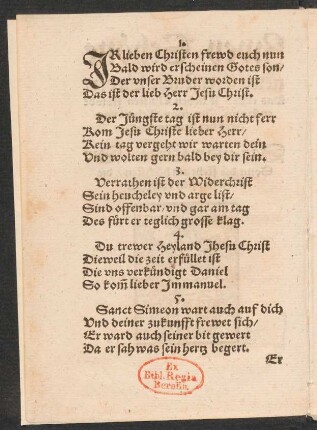 1.
IR lieben Christen frewd euch nun
Bald wird erscheinen Gotes son/
Der vnser Bruder worden ist
Das ist der lieb Herr Jesu Christ.
2.
Der Jüngste tag ist nun nicht ferr
Kom Jesu Christe lieber Herr/
Kein tag vergeht wir warten dein
Vnd wolten gern bald bey dir sein.
3.
Verrathen ist der Widerchrist
Sein heucheley vnd arge list/
Sind offenbar/ vnd gar am tag
Des fürt er teglich grosse klag.
4.
Du trewer Heyland Jhesu Christ
Dieweil die zeit erfüllet ist
Die vns verkündigt Daniel
So kom̃ lieber Immanuel.
5.
Sanct Simeon wart auch auf dich
Vnd deiner zukunfft frewet sich/
Er ward auch seiner bit gewert
Da er sah was sein hertz begert.
Er
Ex
Bibl. Regia
Berolin.